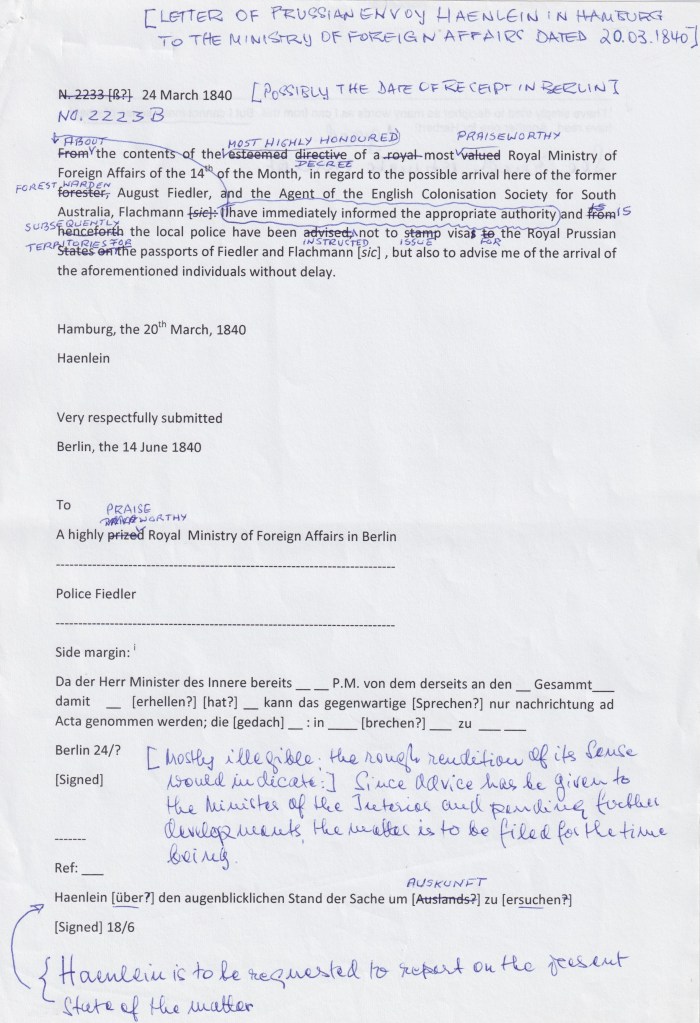 [LETTER OF PRUSSIAN ENVOY HAENLEIN IN HAMBURG
TO THE MINISTRY OF FOREIGN AFFAIRS DATED 20.03.1840]
N. 2233 [ß?] 24 March 1840 [POSSIBLY THE DATE OF RECEIPT IN BERLIN]
NO. 2223 B
ABOUT MOST HIGHLY HONOURED) PRAISEWORTHY
From the contents of the esteemed directive of a royal most valued Royal Ministry of
DECREE
Foreign Affairs of the 14th of the Month, in regard to the possible arrival here of the former
FOREST WARDEN
forester, August Fiedler, and the Agent of the English Colonisation Society for South
Australia, Flachmann [sic]: I have immediately informed the appropriate authority and from IS
SUBSEQUENTLY
henceforth the local police have been advised, not to stamp visas to the Royal Prussian
TERRITORIES FOR INSTRUCTED ISSUE FOR
States on the passports of Fiedler and Flachmann [sic] , but also to advise me of the arrival of
the aforementioned individuals without delay.
Hamburg, the 20th March, 1840
Haenlein
Very respectfully submitted
Berlin, the 14 June 1840
To
PRAISE
WORTHY
A highly prized Royal Ministry of Foreign Affairs in Berlin
----------------------------------------------------------------------
Police Fiedler
----------------------------------------------------------------------
Side margin: i
Da der Herr Minister des Innere bereits __ __ P.M. von dem derseits an den __ Gesammt___
damit __ [erhellen?] [hat?] __ kann das gegenwartige [Sprechen?] nur nachrichtung ad
Acta genommen werden; die [gedach] __ : in ____ [brechen?] ____ zu ___ ___
Berlin 24/? [Mostly illegible; the rough rendition of its sense
[Signed] would indicate:] Since advice has be given to
the Minister of the Interior and pending further
------- developments, the matter is to be filed for the time
being.
Ref: ___
AUSKUNFT
Haenlein [über?] den augenblicklichen Stand der Sache um [Auslands?] zu [ersuchen?]
[Signed] 18/6
{ Haenlein is to be requested to report on the present
state of the matter